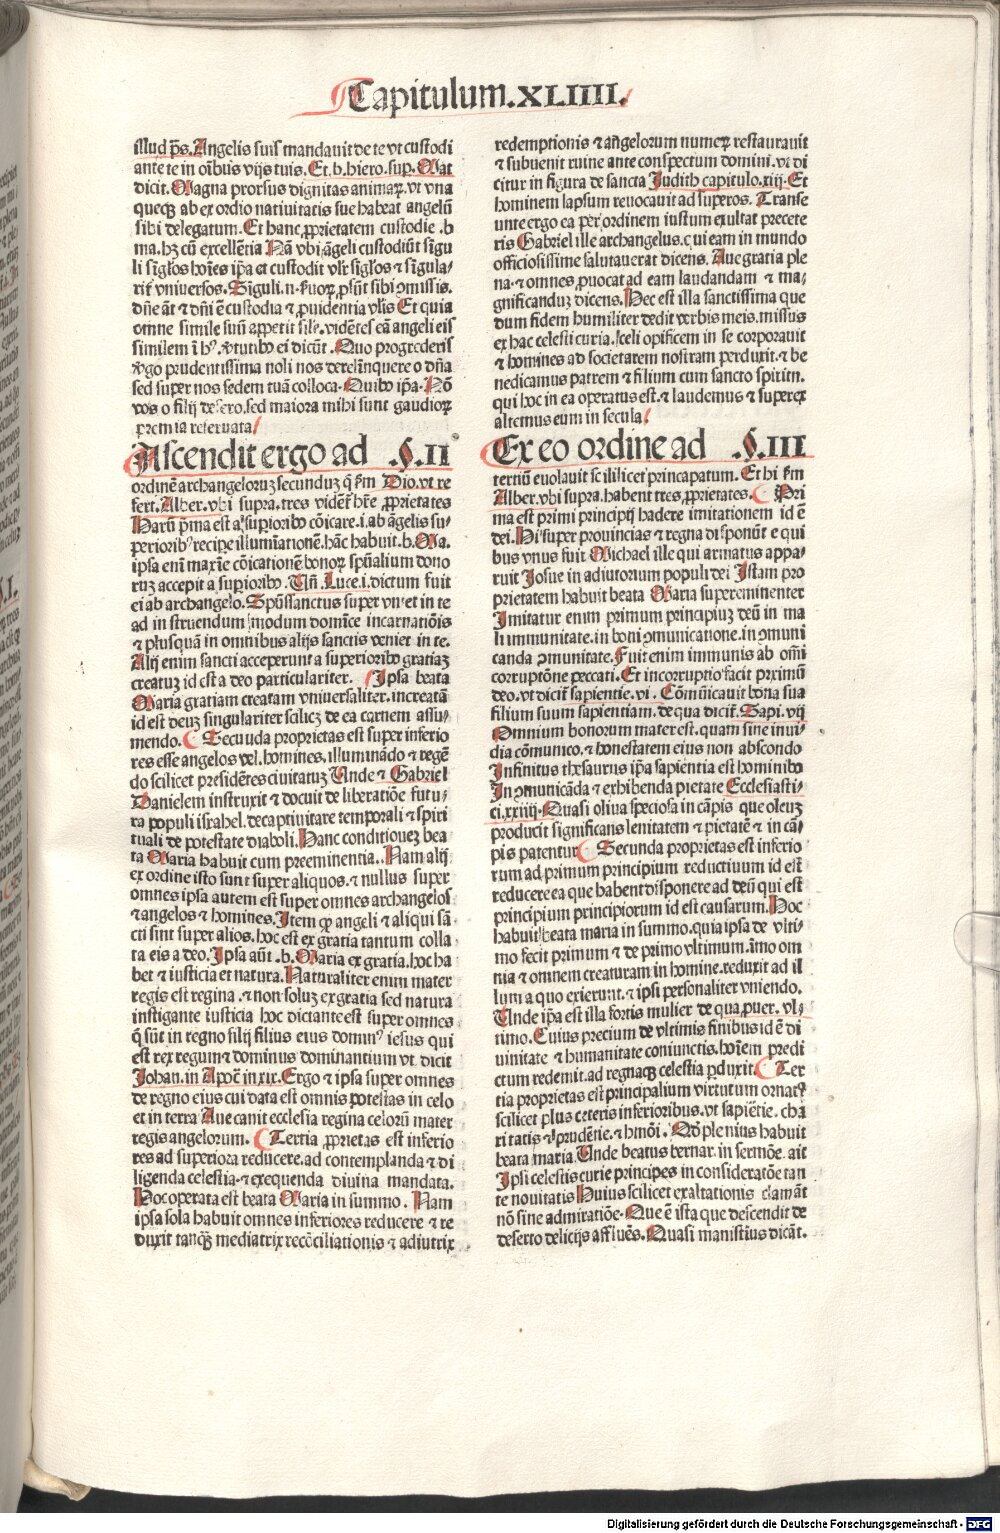 Capitulum.XLIIII.
illud p̄s. Angelis suis mandauit de te vt custodi
ant te in oībus vijs tuis. Et.b.hiero.sup. Mat
dicit. Magna prorsus dignitas animaꝝ. vt vna
queqꝫ ab ex ordio natiuitatis sue habeat angelū
sibi delegatum. Et hanc ꝓprietatem custodie .b
ma.hꝫ cū excellētia Nā vbi āgeli custodiūt sīgu
li sigl̄os hoīes ip̄a et custodit vlr̄ sigl̄os ⁊ sīgula-
rit̄ vniuersos. Siguli.n. suoꝝ ꝓsūt sibi ꝯmissis.
dn̄e āt ⁊ dn̄i ē custodia ⁊ ꝓuidentia vl̄is Et quia
omne simile suū appetit sil̄e. vidētes eā angeli eis
similem ī
Quo progrederis
v̄go prudentissima noli nos derelīnquere o dn̄a
sed super nos sedem tuā colloca. Quibꝰ ip̄a. Nō
vos o filij desero. sed maiora mihi sunt gaudioꝝ
premia reseruata
Ascendit ergo ad .§.II
ordinē archangeloruꝫ secunduꝫ q̄ s̄m Dio. vt re
fert. Alber. vbi supra. tres vident̄ hr̄e ꝓprietates
Harū p̄ma est a suꝑioribꝰ cōicare. i. ab āgelis su-
perioribꝰ recipe illumīationē. hāc habuit. b. Ma.
ipsa enī maxīe cōicationē bonoꝝ sp̄ualium dono
ruꝫ accepit a suꝑioribꝰ. Un̄ Luce.i. dictum fuit
ei ab archangelo. Sp̄ussanctus super vniet in te
ad instruendum modum domīce incarnatiōis
⁊ plusquā in omnibus alijs sanctis veniet in te.
Alij enim sancti acceperunt a superioribꝰ gratiaꝫ
creatuꝫ id est a deo particulariter. Ipsa beata
Maria gratiam creatam vniuersaliter. increatā
id est deuꝫ singulariter scilicꝫ de ea carnem assu-
mendo. Secuuda proprietas est super inferio
res esse angelos vel. homines. illuminādo ⁊ regē
do scilicet presidētes ciuitatuꝫ Unde ⁊ Gabriel
Danielem instruxit ⁊ docuit de liberatiōe futu-
ra populi israhel. de captiuitate temporali ⁊ spiri
tuali de potestate diaboli. Hanc conditioneꝫ bea
ta Maria habuit cum preeminentia.. Nam alij
ex ordine isto sunt super aliquos. ⁊ nullus super
omnes ipsa autem est super omnes archangelos
⁊ angelos ⁊ homines. Item qꝫ angeli ⁊ aliqui sā
cti sunt super alios. hoc est ex gratia tantum colla
ta eis a deo. Ipsa aūt .b. Maria ex gratia. hoc ha
bet ⁊ iusticia et natura. Naturaliter enim mater
regis est regina . ⁊ non soluꝫ ex gratia sed natura
instigante iusticia hoc dictante est super omnes
q̄ sūt in regno filij filius eius domnꝰ iesus qui
est rex regum ⁊ dominus dominantium vt dicit
Johan. in Apoc̄ in xix. Ergo ⁊ ipsa super omnes
de regno eius cui data est omnis potestas in celo
et in terra Aue canit ecclesia regina celorū mater
regis angelorum. Tertia ꝓprietas est inferio
res ad superiora reducere. ad contemplanda ⁊ di
ligenda celestia. ⁊ exequenda diuina mandata.
Hoc operata est beata Maria in summo. Nam
ipsa sola habuit omnes inferiores reducere ⁊ re
duxit tanqꝫ mediatrix recōciliationis ⁊ adiutrix
redemptionis ⁊ an̄gelorum numeꝝ restaurauit
⁊ subuenit ruine ante conspectum domini. vt di
citur in figura de sancta Judith capitulo.xiij. Et
hominem lapsum reuocauit ad superos. Transe
unte ergo ea per ordinem iustum exultat precete
ris Gabriel ille archangelus. q ui eam in mundo
officiosissime salutauerat dicens. Aue gratia ple
na. ⁊ omnes ꝓuocat ad eam laudandam ⁊ ma-
gnificanduꝫ dicens. Hec est illa sanctissima que
dum fidem humiliter dedit verbis meis. missus
ex hac celesti curia. celi opificem in se corporauit
⁊ homines ad societatem nostram perduxit. ⁊ be
nedicamus patrem ⁊ filium cum sancto spiritu.
qui hoc in ea operatus est. ⁊ laudemus ⁊ superex
altemus eum in secula
Ex eo ordine ad .§.III
tertiū euolauit scilicet principatum. Et hi s̄m
Alber. vbi supra. habent tres ꝓprietates. Pri
ma est primi principij hadere imitationem id ē
dei. Hi super prouincias ⁊ regna disponūt e qui
bus vnus fuit Michael ille qui armatus appa-
ruit Josue in adiutorium populi dei Istam pro
prietatem habuit beata Maria supereminenter
Imitatur enim primum principiuꝫ deū in ma
li immunitate. in boni ꝯmunicatione. in ꝯmuni
canda ꝯmunitate. Fuit enim immunis ab om̄i
corruptōne peccati. Et incorruptio facit ꝓximū
deo. vt dicit̄ sapientie. vi. Cōmūicauit bona sua
filium suum sapientiam. de qua dicit̄. Sapi. vij
Omnium bonorum mater est. quam sine inui-
dia cōmunico. ⁊ honestatem eius non abscondo
Infinitus thesaurus ip̄a sapientia est hominibꝰ
In ꝯmunicāda ⁊ exhibenda pietate Ecclesiasti-
ci.xxiiij. Quasi oliua speciosa in cāpis que oleuꝫ
producit significans lenitatem ⁊ pietatē ⁊ in cā-
pis patentur Secunda proprietas est inferio
rum ad primum principium reductiuum id est
reducere ea que habent disponere ad deū qui est
principium principiorum id est causarum. Hoc
habuit beata maria in summo. quia ipsa de vlti-
mo fecit primum ⁊ de primo vltimum. īmo om
nia ⁊ omnem creaturam in homine. reduxit ad il
lum a quo exierunt. ⁊ ipsi personaliter vniendo.
Unde ip̄a est illa fortis mulier de qua ꝓuer. vlꝫ
timo. Cuius precium de vltimis finibus id ē di
uinitate ⁊ humanitate coniunctis. hoīem predi
ctum redemit. ad regnaqꝫ celestia ꝑduxit. Ter
tia proprietas est principalium virtutum ornatꝰ
scilicet plus ceteris inferioribus. vt sapiētie. cha
ritatis ⁊ prudētie. ⁊ hmōi. Qd̄ plenius habuit
beata maria. Unde beatus bernar. in sermōe. ait
Ipsi celestis curie principes in consideratōe tan
te nouitatis Huius scilicet exaltationis clamāt
nō sine admiratiōe. Que ē ista que descendit de
deserto delicijs affluēs. Quasi manistius dicāt.
Digitalisierung gefördert durch die Deutsche Forschungsgemeinschaft - DFG